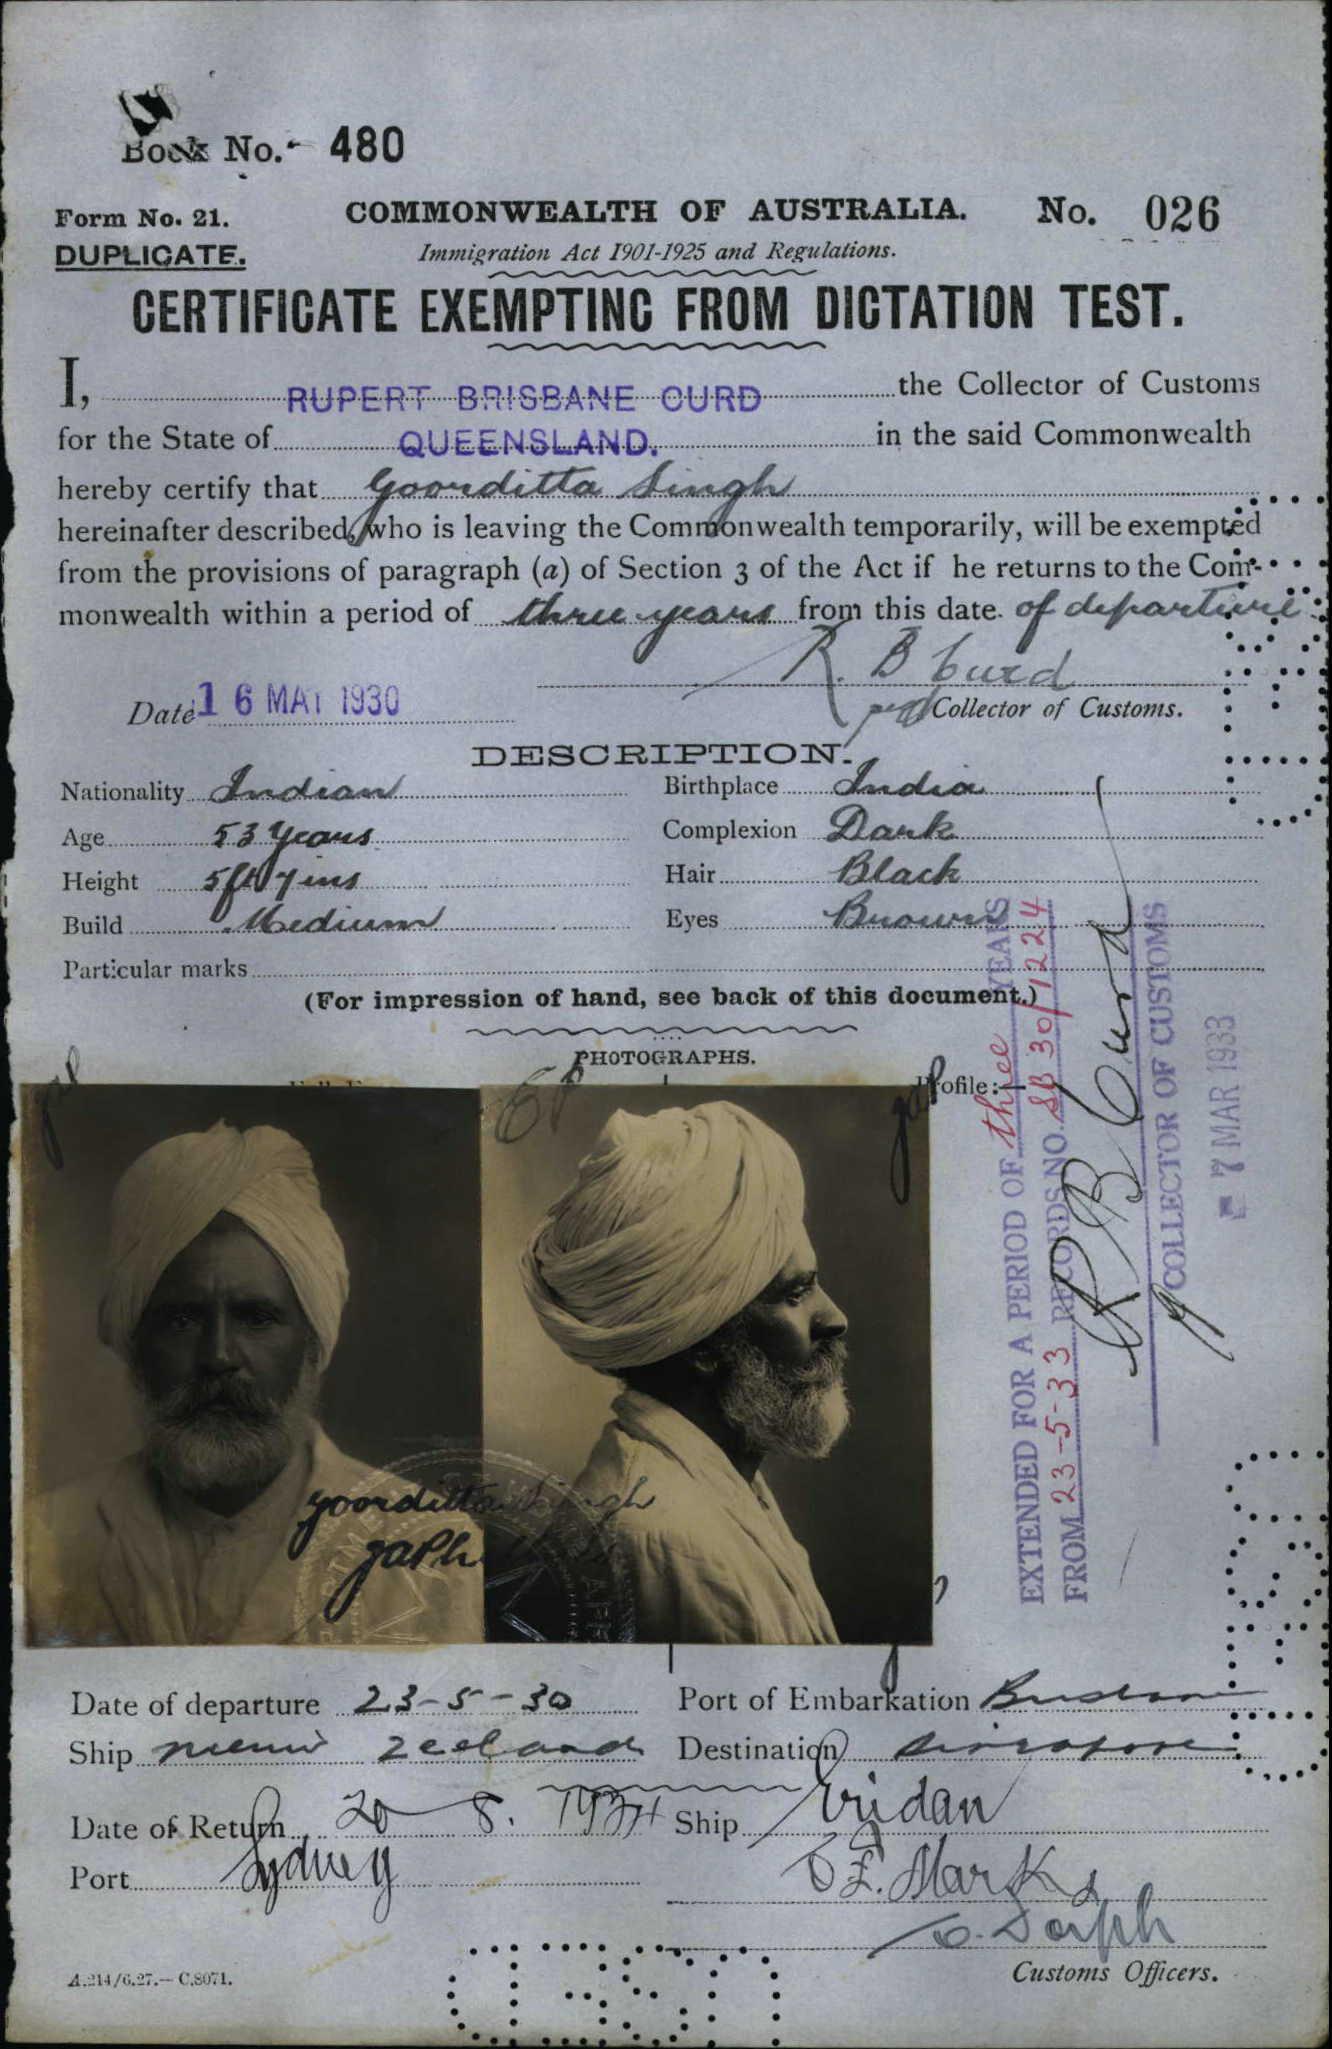 Book No. 480
Form No. 21.
COMMONWEALTH OF AUSTRALIA.
No. 026
DUPLICATE.
Immigration Act 1901-1925 and Regulations.
CERTIFICATE EXEMPTING FROM DICTATION TEST.
I, RUPERT BRISBANE CURD the Collector of Customs
for the State of QUEENSLAND. in the said Commonwealth
hereby certify that Goorditta Singh
hereinafter described, who is leaving the Commonwealth temporarily, will be exempted
from the provisions of paragraph (a) of Section 3 of the Act if he returns to the Com-
monwealth within a period of three years from this date of departure
R. B Curd
Date 16 MAY 1930
Collector of Customs.
DESCRIPTION.
Nationality Indian
Birthplace India
Age 53 Years
Complexion Dark
Height 5ft 7ins
Hair Black
Build Medium
Eyes Brown
Particular marks
(For impression of hand, see back of this document.)
PHOTOGRAPHS.
Profile:—
EXTENDED FOR A PERIOD OF three YEARS
FROM 23-5-33 RECORDS NO. SB 30/1224
R B Curd
COLLECTOR OF CUSTOMS
7 MAR 1933
goorditta Singh
Date of departure 23-5-30
Port of Embarkation Brisbane
Ship Nieuw Zeeland
Destination Singapore
Date of Return 20 8. 1934
Ship Eridan
Port Sydney
Marks
Customs Officers.
A.214/6.27.— C.8071.